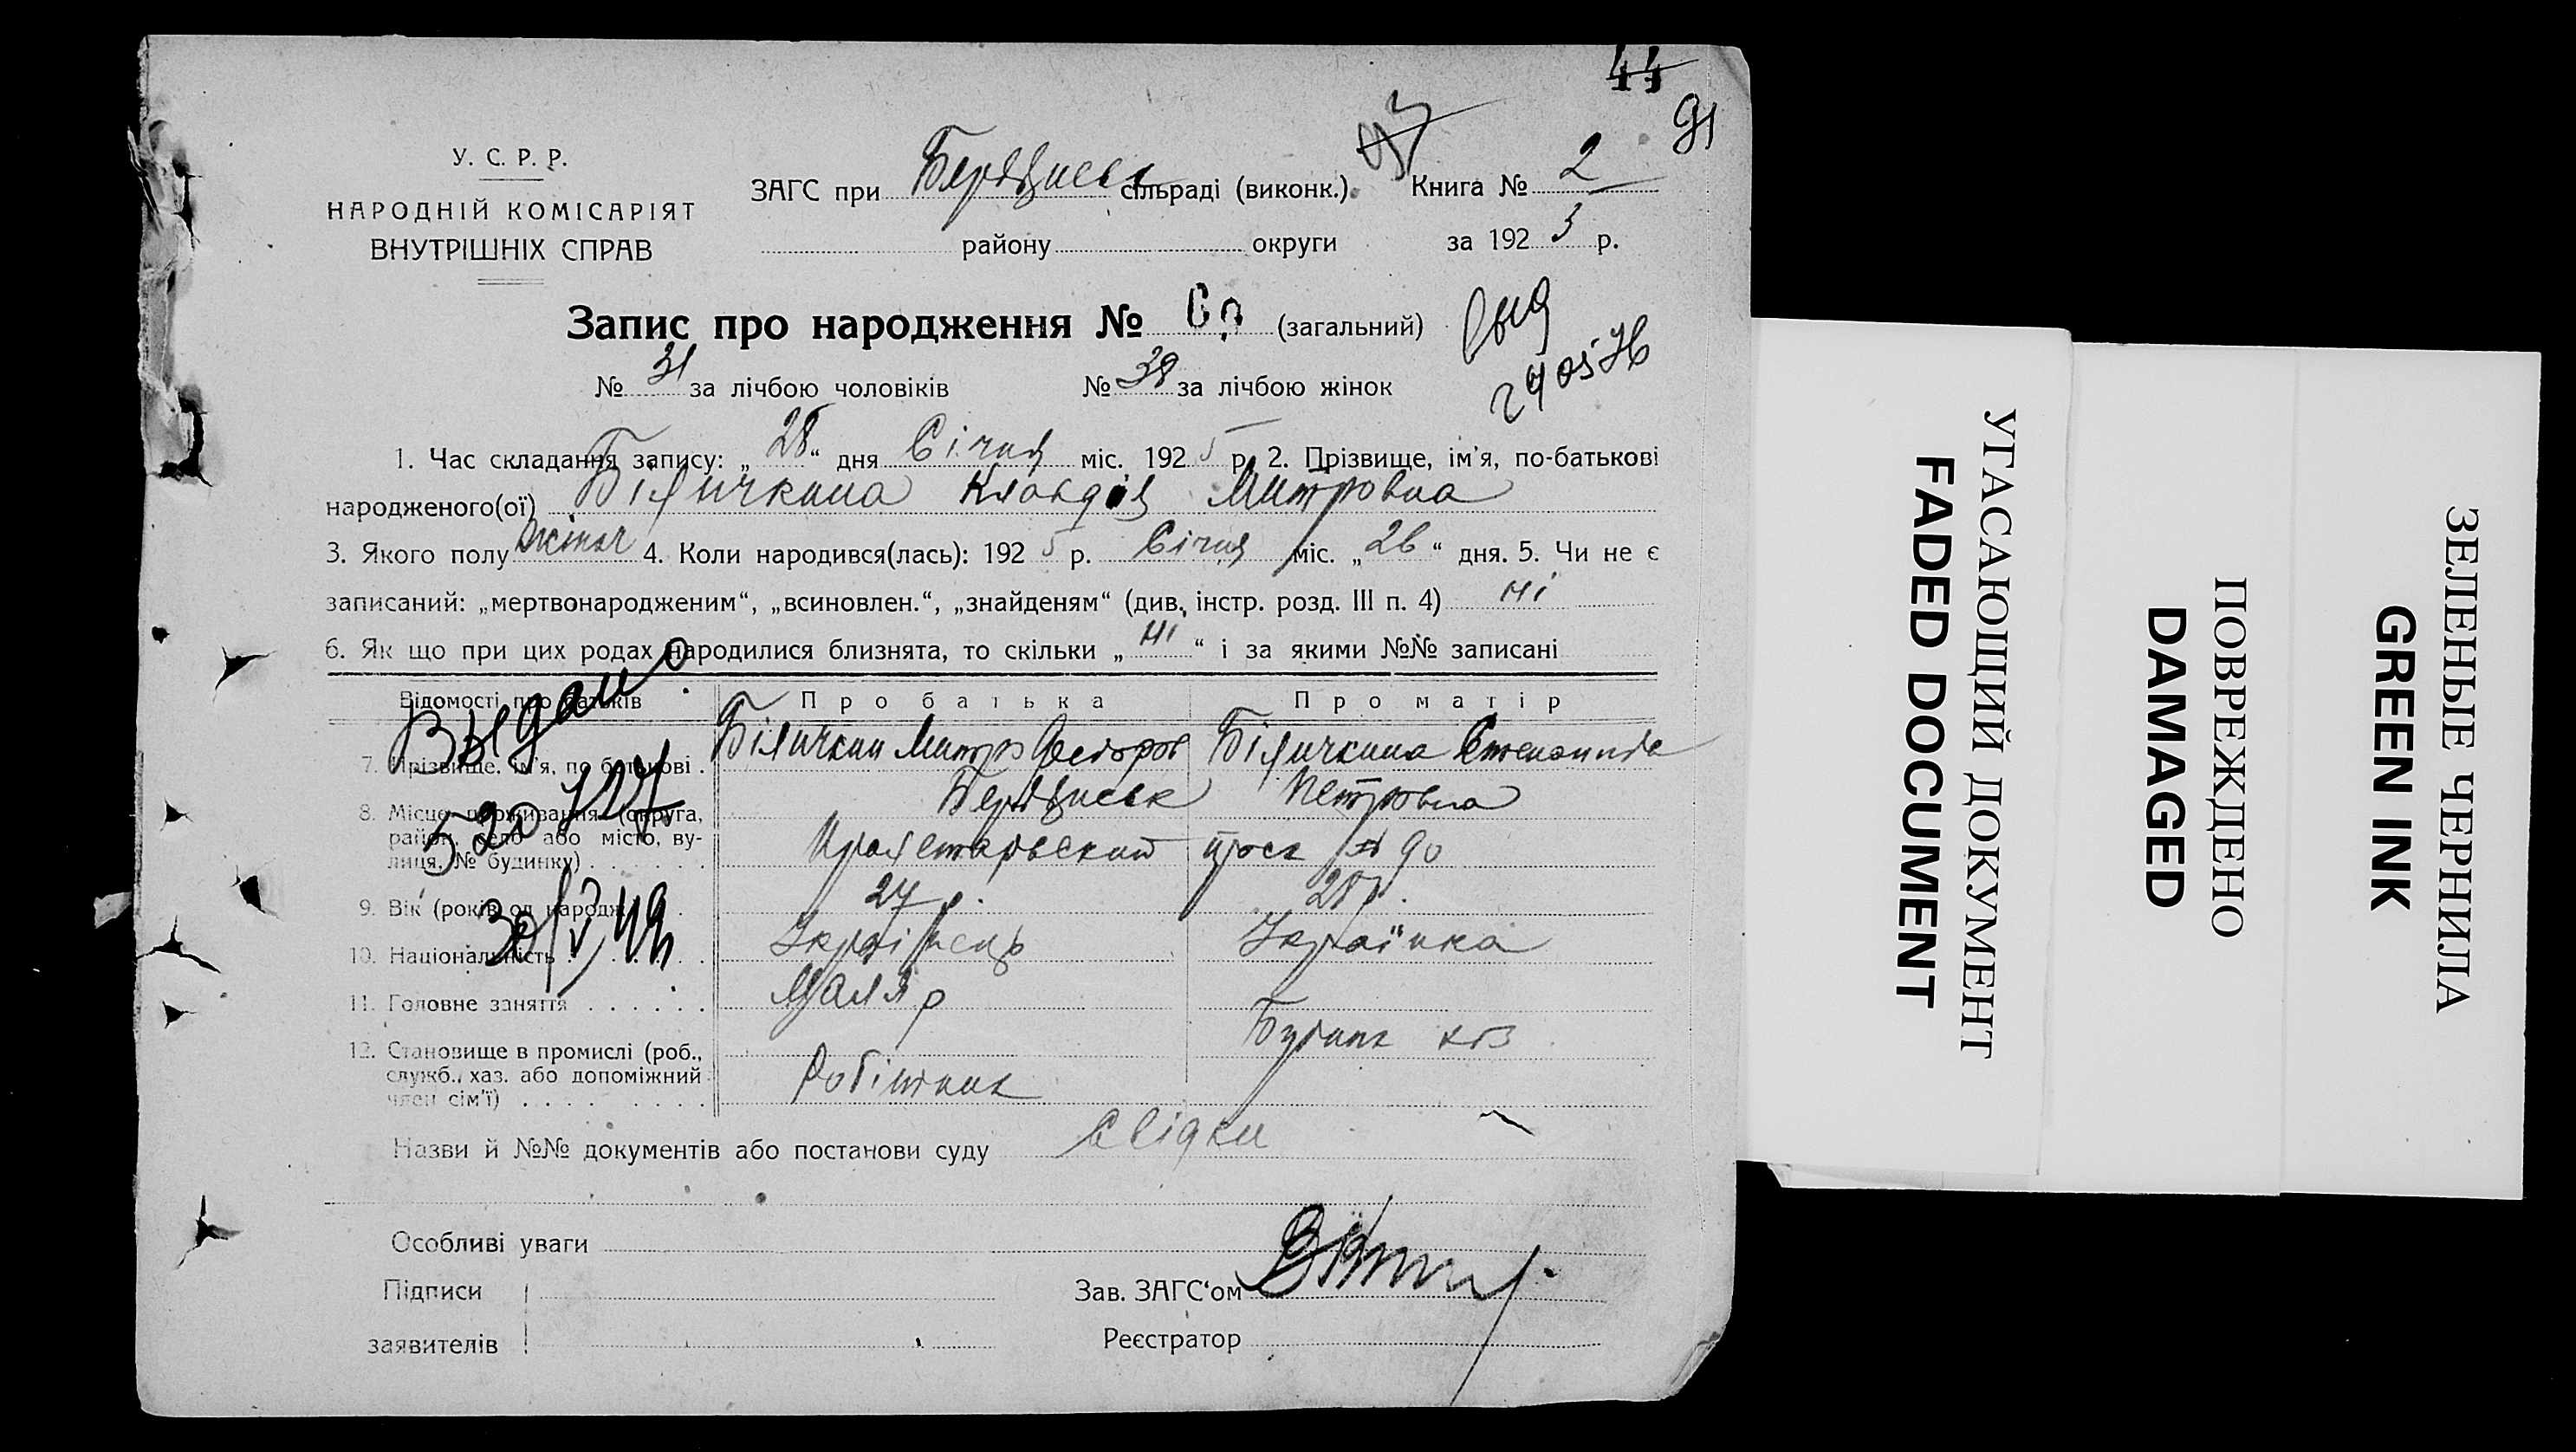 44
91
У. С. Р. Р.
НАРОДНІЙ КОМІСАРІЯТ
ВНУТРІШНІХ СПРАВ
ЗАГС при Бердянськ сільраді (виконк.). Книга № 2
району округи за 192 5 р.
Запис про народження № (загальний)
№ 31 за лічбою чоловіків № 38 за лічбою жінок
1. Час складання запису: „28“ дня Січня міс. 192 5 р. 2. Прізвище, ім'я, по-батькові
народженого(ої) Біличкина Клавдія Митровна
3. Якого полу жіноч 4. Коли народився(лась): 192 5 р. Січня міс. „26“ дня. 5. Чи не є
записаний: „мертвонародженим“, „всиновлен.“, „знайденям“ (див. інстр. розд. III п. 4) ні
6. Як що при цих родах народилися близнята, то скільки „ні“ і за якими №№ записані
Відомості про батьків Про батька Про матір
Выдано
7. Прізвище, ім'я, по батькові . Біличкин Митро Біличкина
8. Місце проживання (округа, район, село або місто, вулиця, № будинку) Бердянськ Петровна
Пролетарьский просп № 90
9. Вік (років од народж.) 27 р. 28 р.
10. Національність Українець Українка
11. Головне заняття Маляр
12. Становище в промислі (роб.,
служб., хаз. або допоміжний
член сім'ї) Робітник
Назви й №№ документів або постанови суду Свідки
Особливі уваги
Підписи
заявителів
Зав. ЗАГС'ом
Реєстратор
УГАСАЮЩИЙ ДОКУМЕНТ
FADED DOCUMENT
ПОВРЕЖДЕНО
DAMAGED
ЗЕЛЕНЫЕ ЧЕРНИЛА
GREEN INK